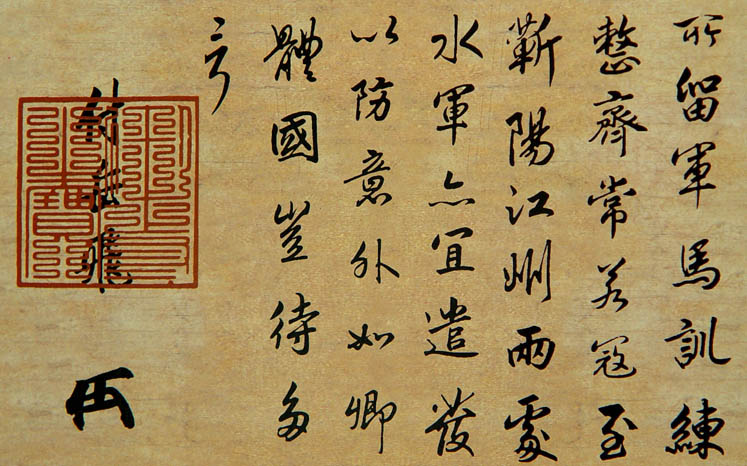 所留軍馬訓練
整齊常若寇至
蘄陽江州兩處
水軍亦宜遣發
以防意外如卿
體國豈待多
言
付岳飛